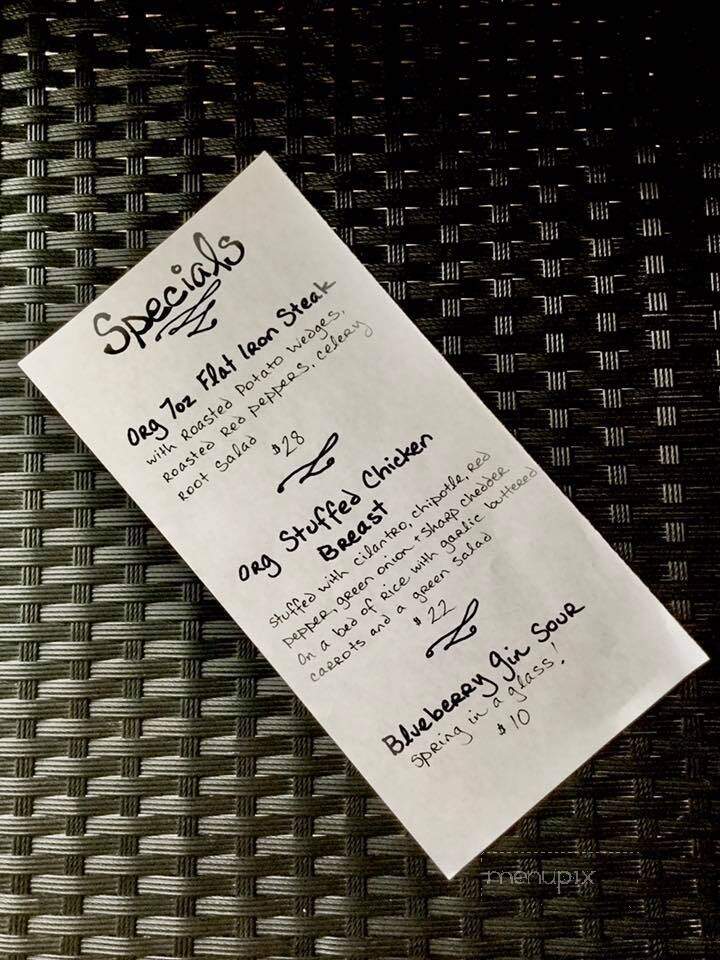 Specials
Org 7oz Flat Iron Steak
with Roasted Potato Wedges,
Roasted Red Peppers, celery
Root Salad
$28
Org Stuffed Chicken
Breast
Stuffed with cilantro, chipotle, red
pepper, green onion + sharp cheddar
On a bed of rice with garlic buttered
carrots and a green salad
$22
Blueberry Gin Sour
Spring in a glass!
$10
menupix